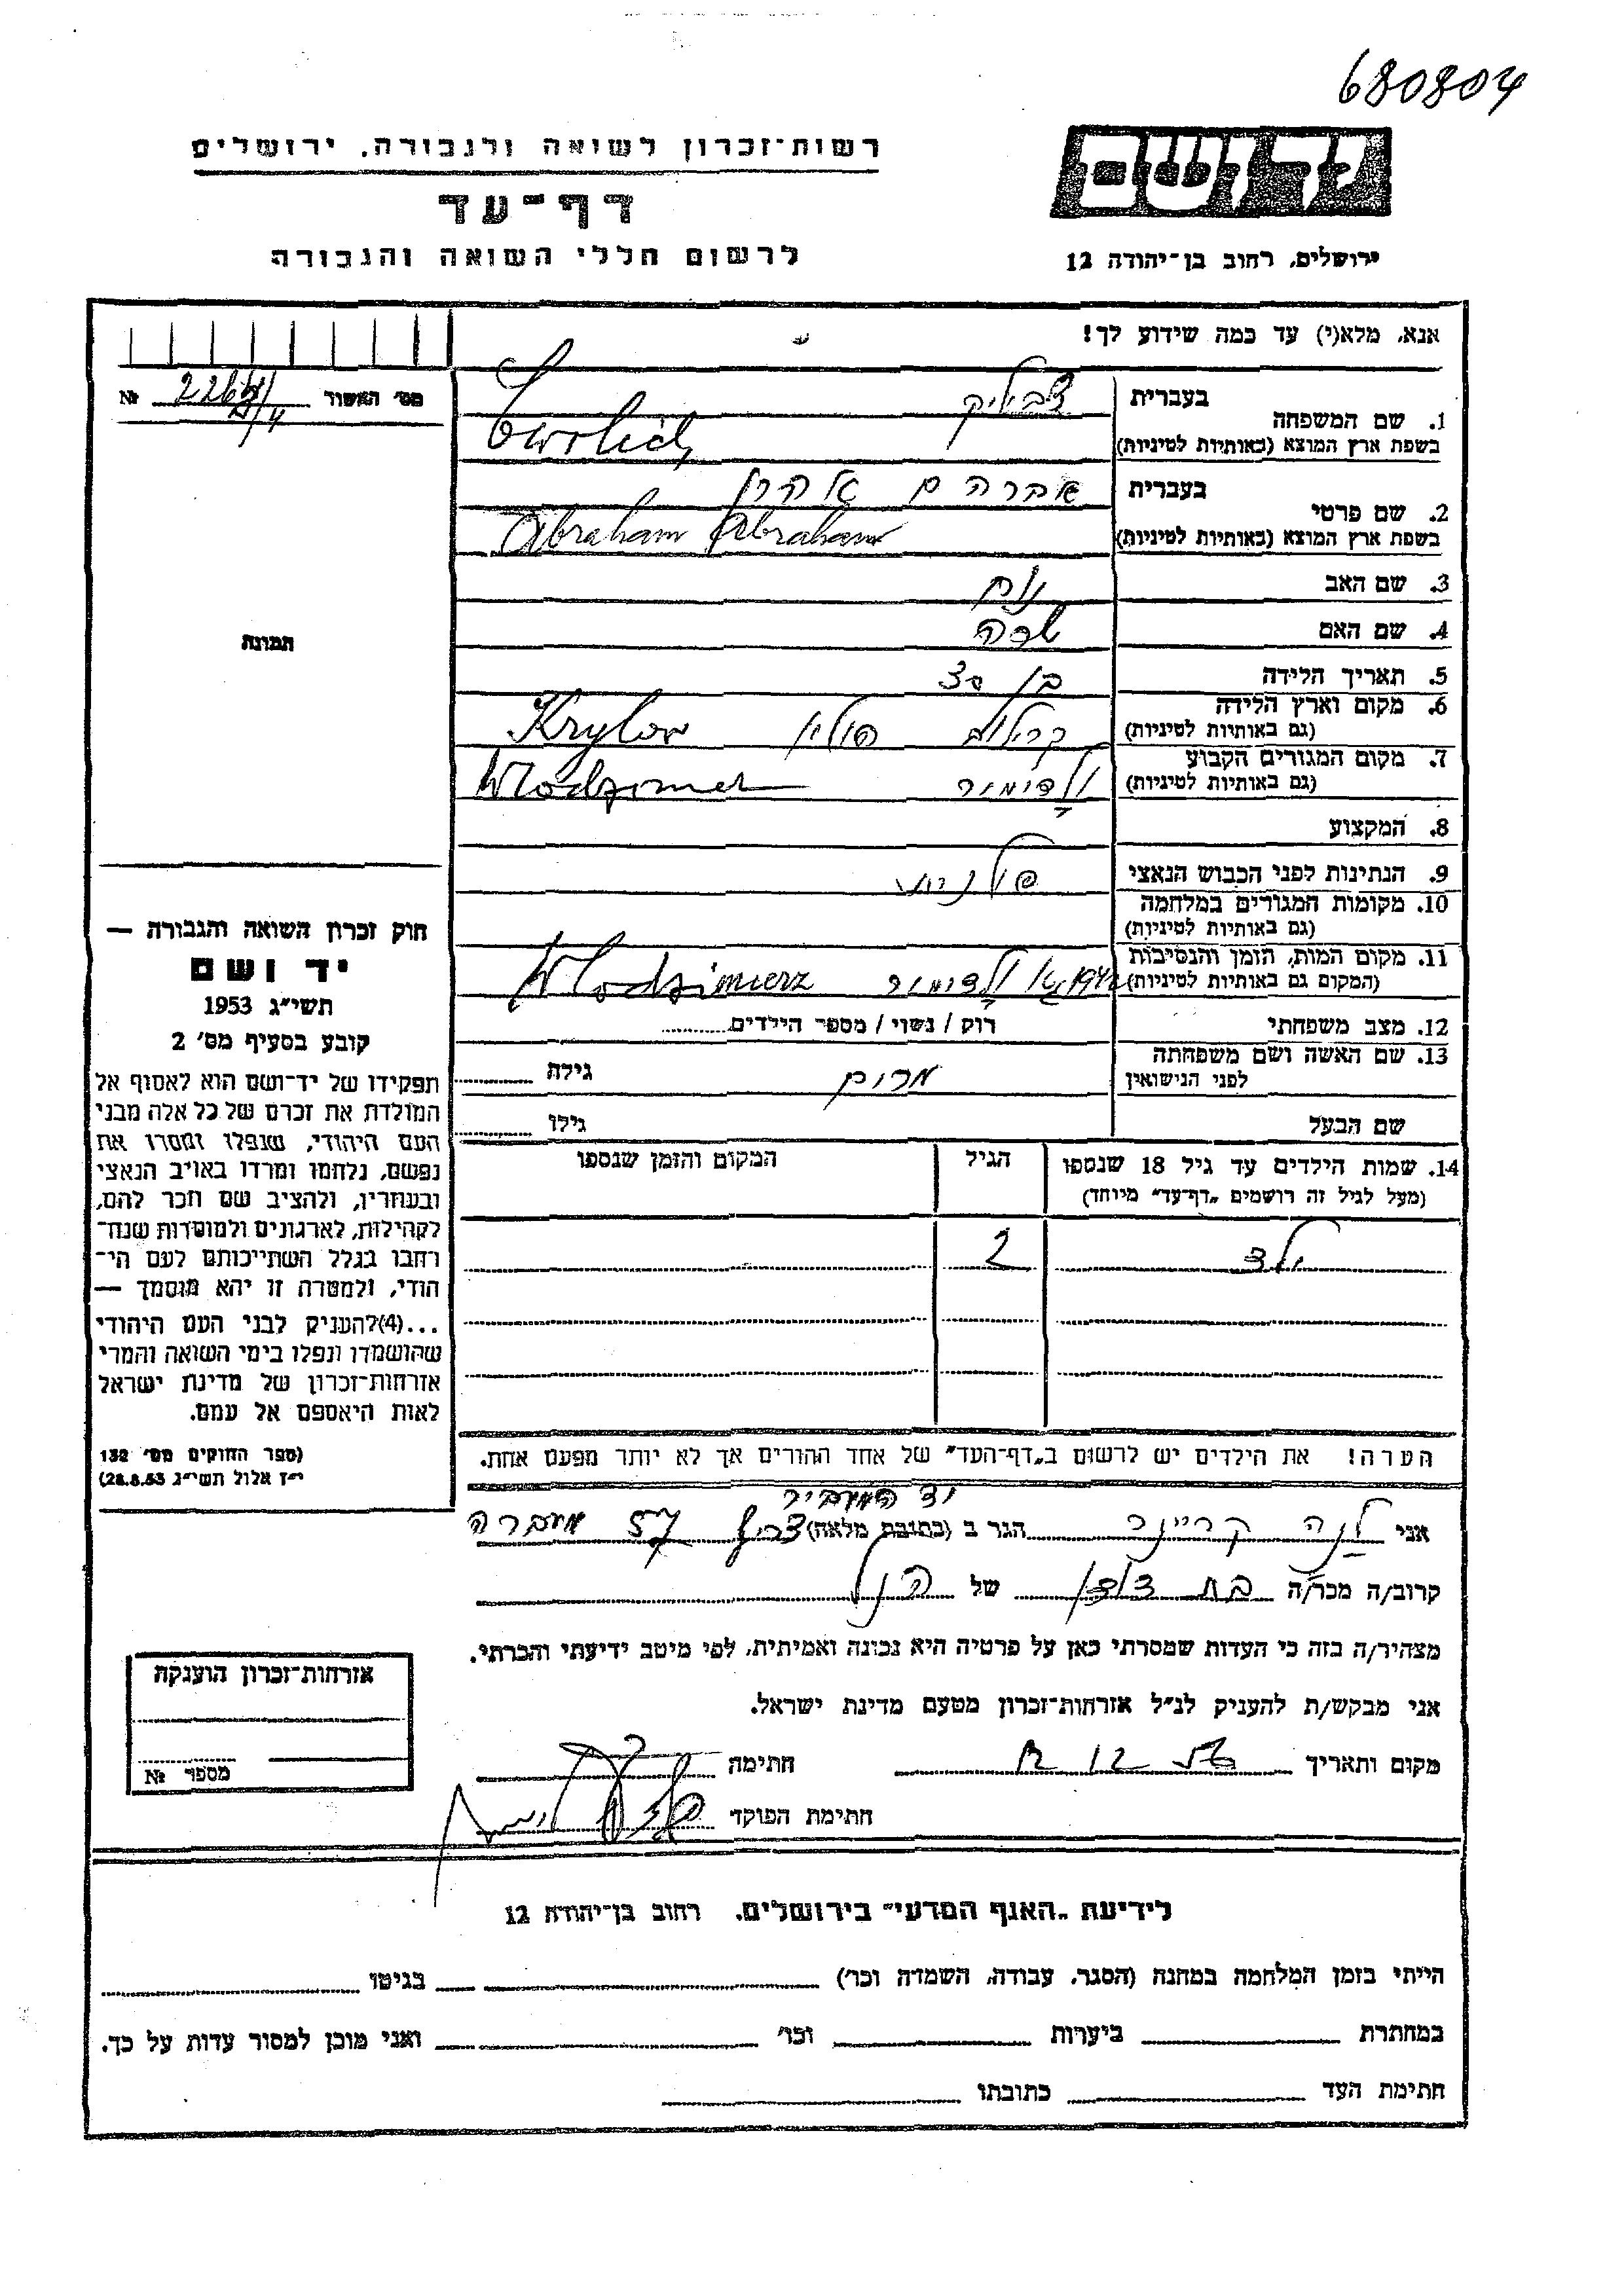 680804
יד ושם
רשות־זכרון לשואה ולגבורה, ירושלים
דף־עד
לרשום חללי השואה והגבורה
ירושלים, רחוב בן־יהודה 12
אנא, מלא(י) עד כמה שידוע לך!
מס׳ האשור № 
1. שם המשפחה
בעברית
בשפת ארץ המוצא (באותיות לטיניות)
2. שם פרטי
בעברית אברהם אהרן
בשפת ארץ המוצא (באותיות לטיניות) Abraham Abraham
3. שם האב
4. שם האם שרה
5. תאריך הלידה בן 30
6. מקום וארץ הלידה
(גם באותיות לטיניות) קרילוב פולין Krylow
7. מקום המגורים הקבוע
(גם באותיות לטיניות) ולדימיר
8. המקצוע
9. הנתינות לפני הכבוש הנאצי פולנית
10. מקומות המגורים במלחמה
(גם באותיות לטיניות)
11. מקום המות, הזמן והנסיבות
(המקום גם באותיות לטיניות) ולדימיר Wlodzimierz
12. מצב משפחתי רווק / נשוי / מספר הילדים
13. שם האשה ושם משפחתה
לפני הנישואין מרים גילה
שם הבעל גילו
14. שמות הילדים עד גיל 18 שנספו
(מעל לגיל זה רושמים „דף־עד״ מיוחד)
הגיל
המקום והזמן שנספו
ילד 2
הערה! את הילדים יש לרשום ב„דף־העד״ של אחד ההורים אך לא יותר מפעם אחת.
תמונה
חוק זכרון השואה והגבורה —
יד ושם
תשי״ג 1953
קובע בסעיף מס׳ 2
תפקידו של יד־ושם הוא לאסוף אל
המולדת את זכרם של כל אלה מבני
העם היהודי, שנפלו ומסרו את
נפשם, נלחמו ומרדו באויב הנאצי
ובעוזריו, ולהציב שם וזכר להם,
לקהילות, לארגונים ולמוסדות שנח־
רבו בגלל השתייכותם לעם הי־
הודי, ולמטרה זו יהא מוסמך —
...(4)להעניק לבני העם היהודי
שהושמדו ונפלו בימי השואה והמרי
אזרחות־זכרון של מדינת ישראל
לאות היאספם אל עמם.
(ספר החוקים מס׳ 132
י״ז אלול תשי״ג 28.8.53)
אני לנה קריינר הגר ב (כתובת מלאה) צריף 57 מעברה
יד המעביר
קרוב/ה מכר/ה בת דודן של הנ״ל
מצהיר/ה בזה כי העדות שמסרתי כאן על פרטיה היא נכונה ואמיתית, לפי מיטב ידיעתי והכרתי.
אני מבקש/ת להעניק לנ״ל אזרחות־זכרון מטעם מדינת ישראל.
מקום ותאריך
חתימה
חתימת הפוקד
אזרחות־זכרון הוענקה
מספר №
לידיעת „האגף המדעי״ בירושלים, רחוב בן־יהודה 12
הייתי בזמן המלחמה במחנה (הסגר, עבודה, השמדה וכו׳) בגיטו
במחתרת ביערות וכו׳ ואני מוכן למסור עדות על כך.
חתימת העד כתובתו